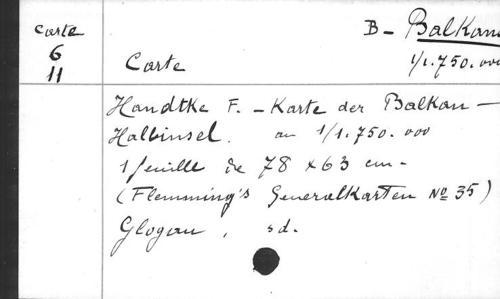 carte
6
11
B - Balkans
Carte
1/1.750.000
Handtke F. - Karte der Balkan -
Halbinsel. au 1/1.750.000
1 feuille de 78 x 63 cm -
(Flemming's Generalkarten No 35)
Glogau, sd.